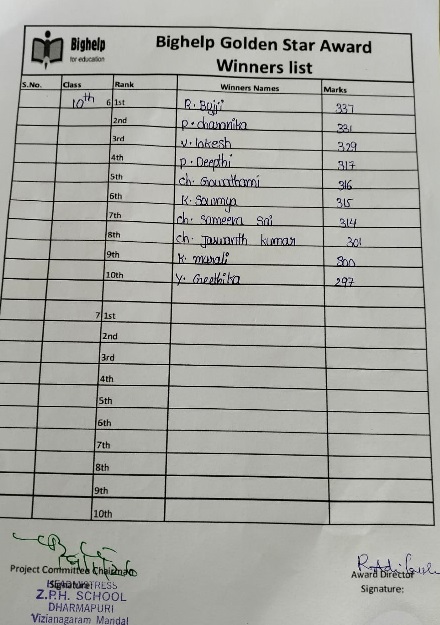 Bighelp
for education
Bighelp Golden Star Award
Winners list
S.No. Class Rank Winners Names Marks
10th 6 1st R. Bujji 337
2nd P. charmika 331
3rd V. lokesh 329
4th P. Deepthi 317
5th ch. Gowthami 316
6th K. Sowmya 315
7th ch. Sameera Sai 314
8th ch. Jaswanth kumar 301
9th K. murali 300
10th Y. Geethika 297
7 1st
2nd
3rd
4th
5th
6th
7th
8th
9th
10th
Project Committee Chairman
Signature:
HEADMISTRESS
Z.P.H. SCHOOL
DHARMAPURI
Vizianagaram Mandal
Award Director
Signature: